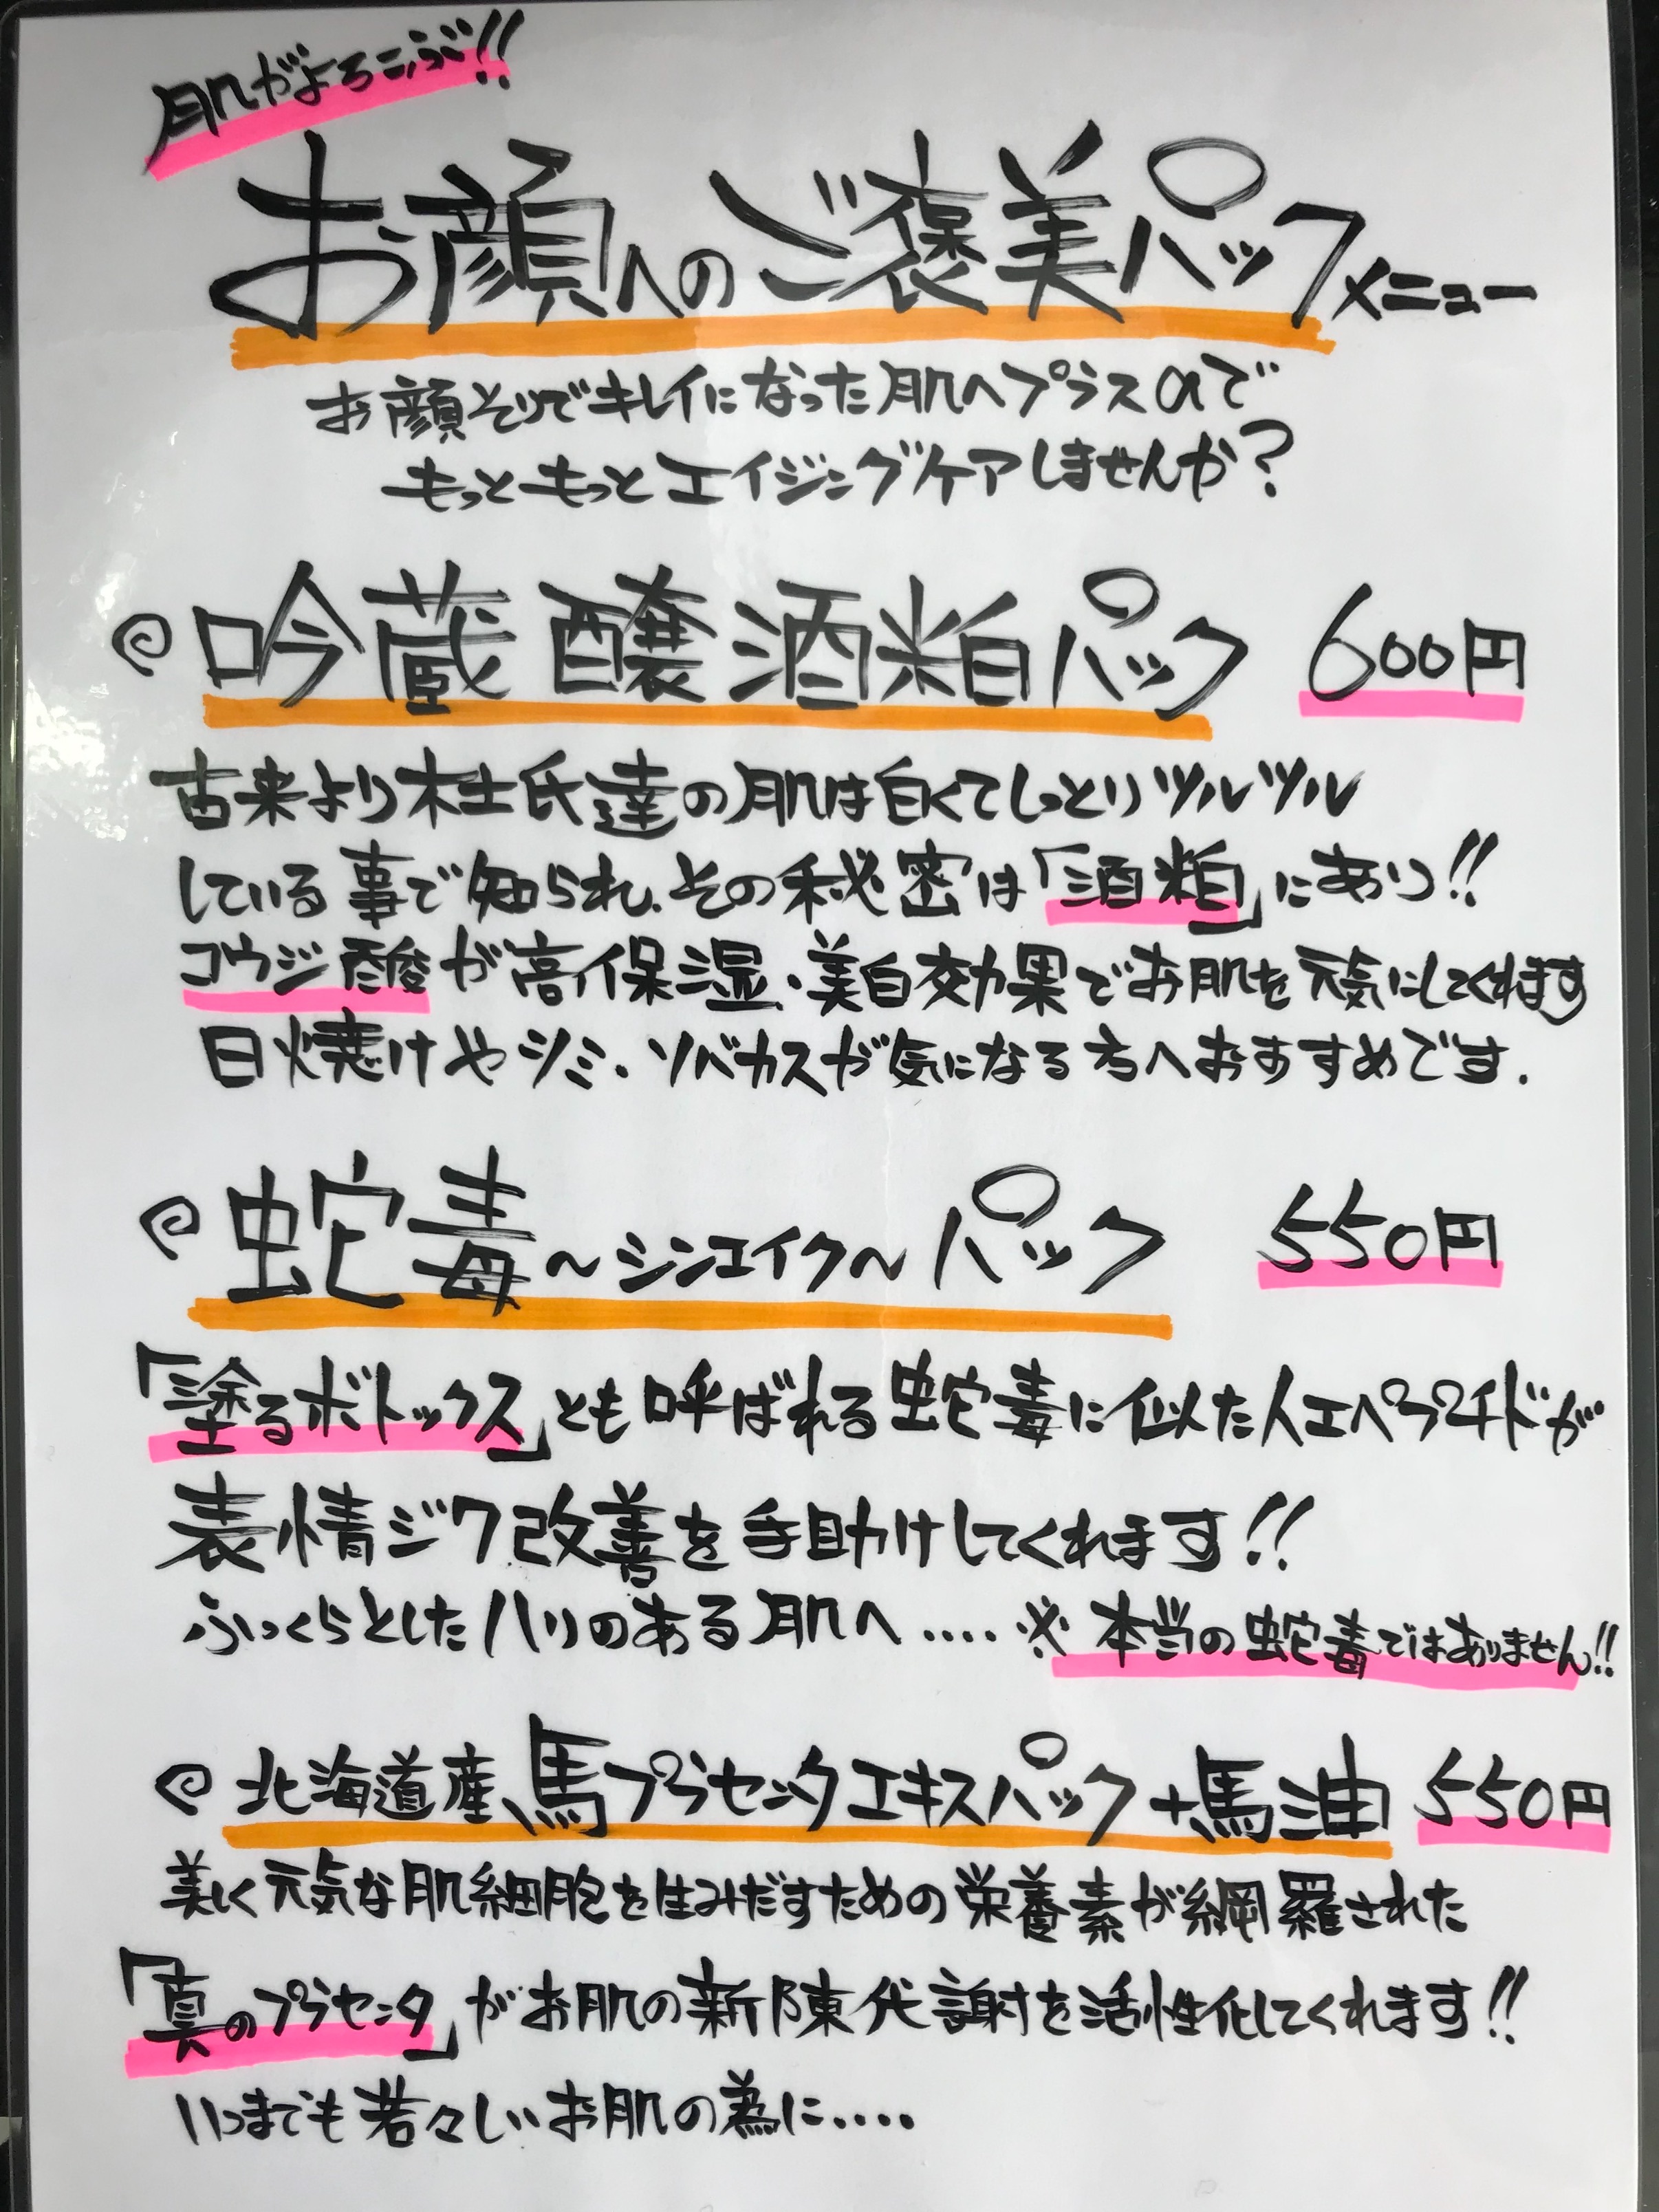 肌がよろこぶ!!
お顔へのご褒美パックメニュー
お顔そりでキレイになった肌へプラスαで
もっともっとエイジングケアしませんか?
吟蔵醸酒粕パック 600円
古来より杜氏達の肌は白くてしっとりツルツル
している事で知られ、その秘密は「酒粕」にあり!!
コウジ酸が高保湿、美白効果でお肌を元気にしてくれます
日焼けやシミ・ソバカスが気になる方へおすすめです.
蛇毒〜シンエイク〜パック 550円
「塗るボトックス」とも呼ばれる蛇毒に似た人工ペプチドが
表情ジワ改善を手助けしてくれます!!
ふっくらとしたハリのある肌へ.... ※本当の蛇毒ではありません!!
北海道産馬プラセンタエキスパック+馬油 550円
美しく元気な肌細胞を生みだすための栄養素が網羅された
「真のプラセンタ」がお肌の新陳代謝を活性化してくれます!!
いつまでも若々しいお肌の為に....